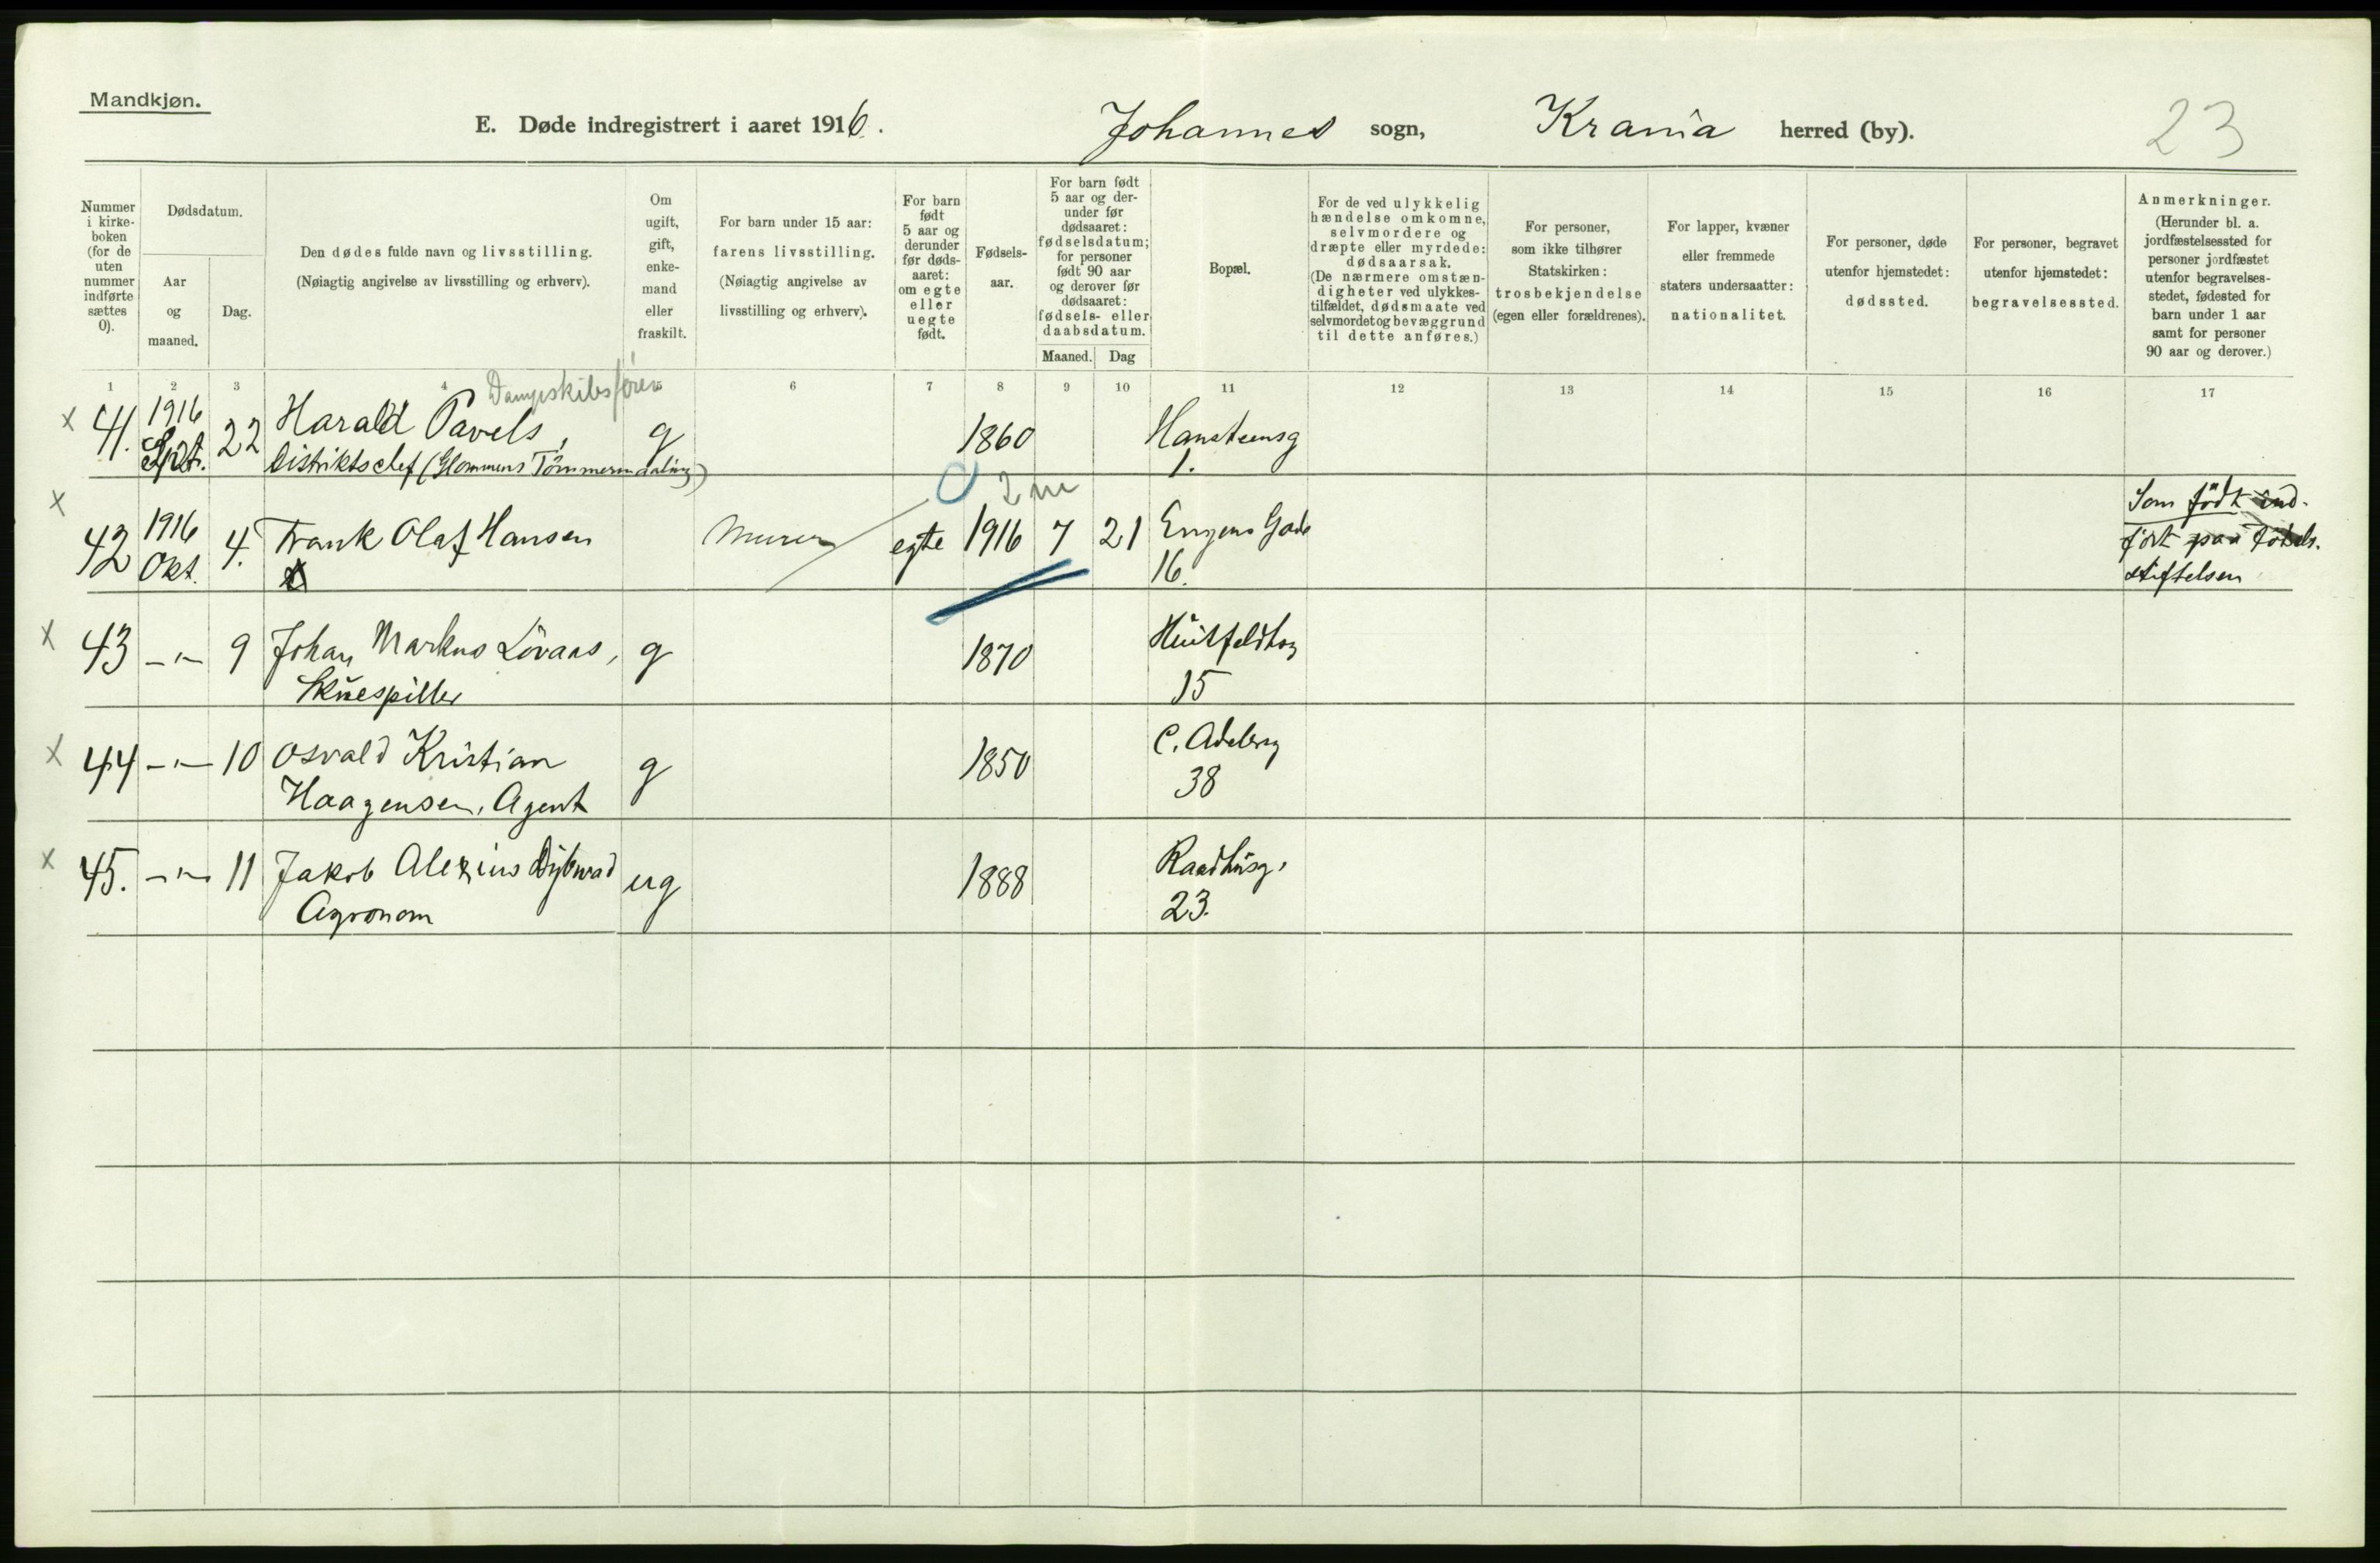 Mandkjøn.
E. Døde indregistrert i aaret 1916. Johannes sogn, Krania herred (by). 23
Nummer i kirkeboken (for de uten nummer indførte sættes 0).
Dødsdatum.
Aar og maaned.
Dag.
Den dødes fulde navn og livsstilling.
(Nøiagtig angivelse av livsstilling og erhverv).
Om ugift, gift, enkemand eller fraskilt.
For barn under 15 aar: farens livsstilling.
(Nøiagtig angivelse av livsstilling og erhverv).
For barn født 5 aar og derunder før dødsaaret: om egte eller uegte født.
Fødselsaar.
For barn født 5 aar og derunder før dødsaaret: fødselsdatum; for personer født 90 aar og derover før dødsaaret: fødsels- eller daabsdatum.
Maaned. Dag
Bopæl.
For de ved ulykkelig hændelse omkomne, selvmordere og dræpte eller myrdede: dødsaarsak.
(De nærmere omstændigheter ved ulykkestilfældet, dødsmaate ved selvmordet og bevæggrund til dette anføres.)
For personer, som ikke tilhører Statskirken: trosbekjendelse (egen eller forældrenes).
For lapper, kvæner eller fremmede staters undersaatter: nationalitet.
For personer, døde utenfor hjemstedet: dødssted.
For personer, begravet utenfor hjemstedet: begravelsessted.
Anmerkninger.
(Herunder bl. a. jordfæstelsessted for personer jordfæstet utenfor begravelsesstedet, fødested for barn under 1 aar samt for personer 90 aar og derover.)
1 2 3 4 5 6 7 8 9 10 11 12 13 14 15 16 17
Dampskibsfører
x 41. 1916 Spt. 22 Harald Pavels, g 1860 Hansteensg
Distriktschef (Glommens Tømmermaaling) 1.
2 m
x 42 1916 Okt. 4. Frank Olaf Hansen Murer egte 1916 7 21 Eugens Gade
16.
Som født ind-
ført paa Fødsels.
stiftelsen
x 43 -"- 9 Johan Markus Lövaas, g 1870 Huitfeldtsg
Skuespiller 15
x 44 -"- 10 Osvald Kristian g 1850 C. Adelersg
Haagensen, Agent 38
x 45. -"- 11 Jakob Alexius Dybwad ug 1888 Raadhusg.
Agronom 23.